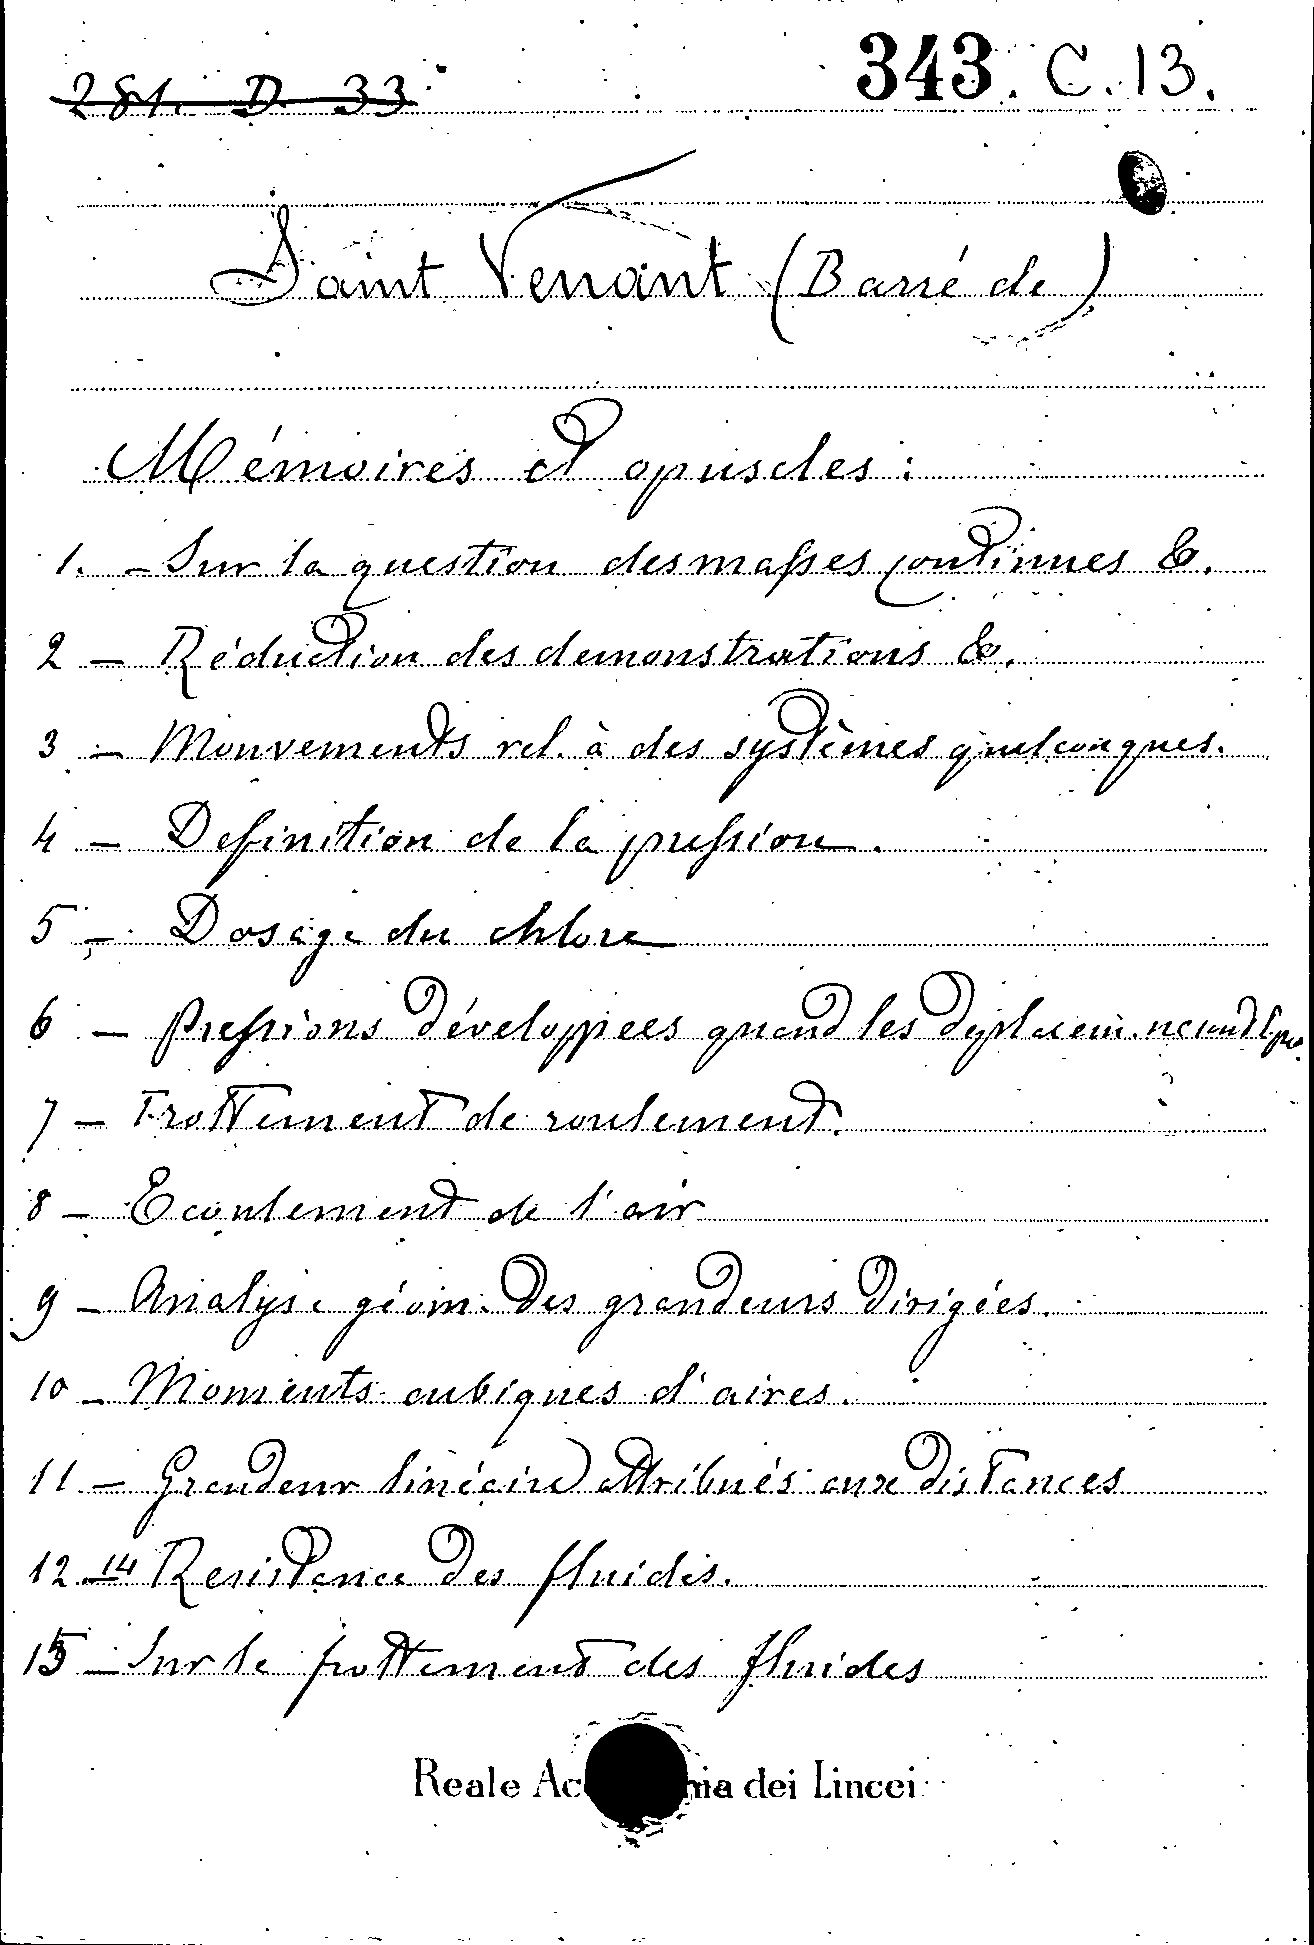 281. D. 33
343. C. 13.
Saint Venant (Barré de)
Mémoires et opuscles :
1. - Sur la question des masses continues &.
2 - Réduction des demonstrations &.
3 - Mouvements rel. à des systèmes quelconques.
4 - Definition de la pression.
5 - Dosage du chlore
6 - Pressions développees quand les deplacem. ne sont
7 - Frottement de roulement.
8 - Ecoulement de l'air
9 - Analyse géom. des grandeurs dirigées.
10 - Moments cubiques d'aires.
11 - Grandeur linéaire attribués aux distances
12-14 Resistance des fluides.
15 - Sur le frottement des fluides
Reale dei Lincei